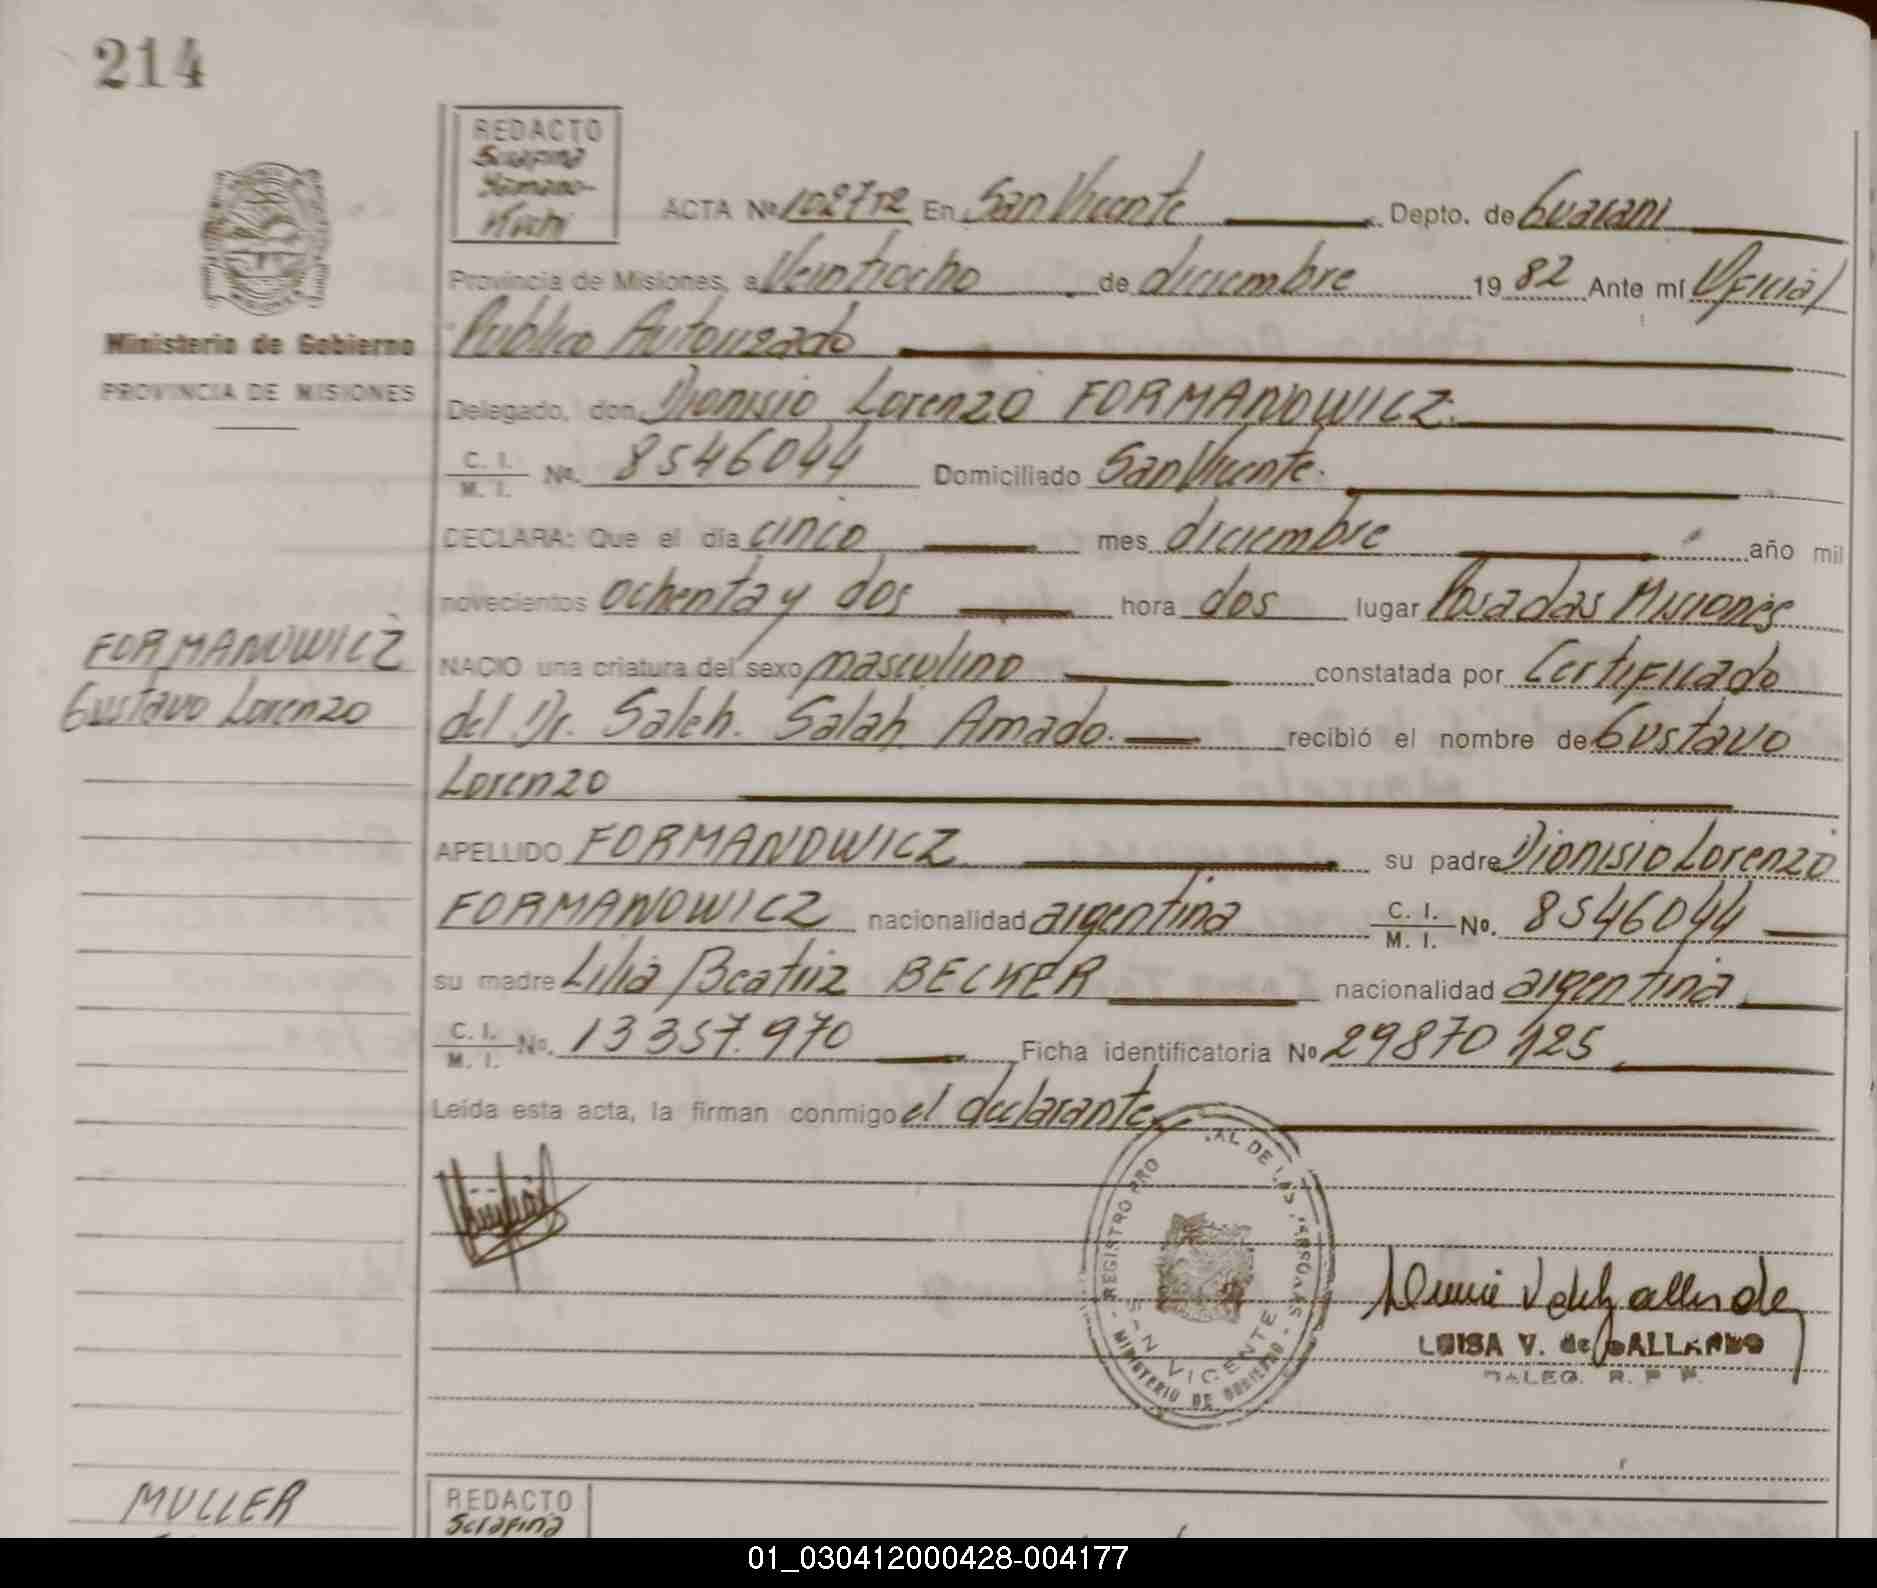 214
REDACTO
Serafina
Ministerio de Gobierno
PROVINCIA DE MISIONES
ACTA Nº En San Vicente Depto. de Guaraní
Provincia de Misiones, a Veintiocho de diciembre 1982 Ante mí Oficial
Público Autorizado
Delegado, don Dionisio Lorenzo FORMANOWICZ.
C. I. / M. I. Nº. 8546044 Domiciliado San Vicente.
DECLARA: Que el día cinco mes diciembre año mil
novecientos ochenta y dos hora dos lugar Posadas Misiones
FORMANOWICZ
Gustavo Lorenzo
NACIO una criatura del sexo masculino constatada por Certificado
del Dr. Saleh. Salah Amado. recibió el nombre de Gustavo
Lorenzo
APELLIDO FORMANOWICZ su padre Dionisio Lorenzo
FORMANOWICZ nacionalidad argentina C. I. / M. I. Nº. 8546044
su madre Lilia Beatriz BECKER nacionalidad argentina
C. I. / M. I. Nº. 13357.970 Ficha identificatoria Nº 29870125
Leída esta acta, la firman conmigo el declarante
REGISTRO PRO AL DE LAS PERSONAS
SAN VICENTE
MINISTERIO DE GOBIERNO
LUISA V. de GALLARDO
DALEG. R. P. P.
MULLER
REDACTO
Serafina
01_030412000428-004177